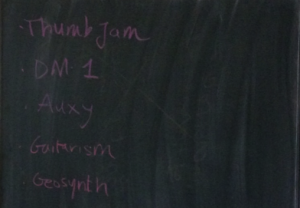 · Thumb Jam
· DM-1
· Auxy
· Guitarism
· Geosynth